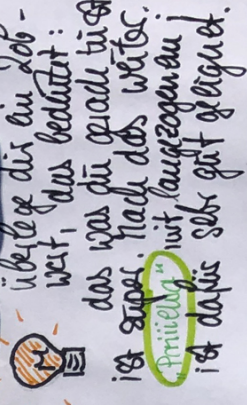 Überlege dir ein Lob-
wort, das bedeutet:
das was du gerade tust
ist super. Mach das weiter.
"Priiiiellig" mit langezogenem i
ist dafür sehr gut geeignet.